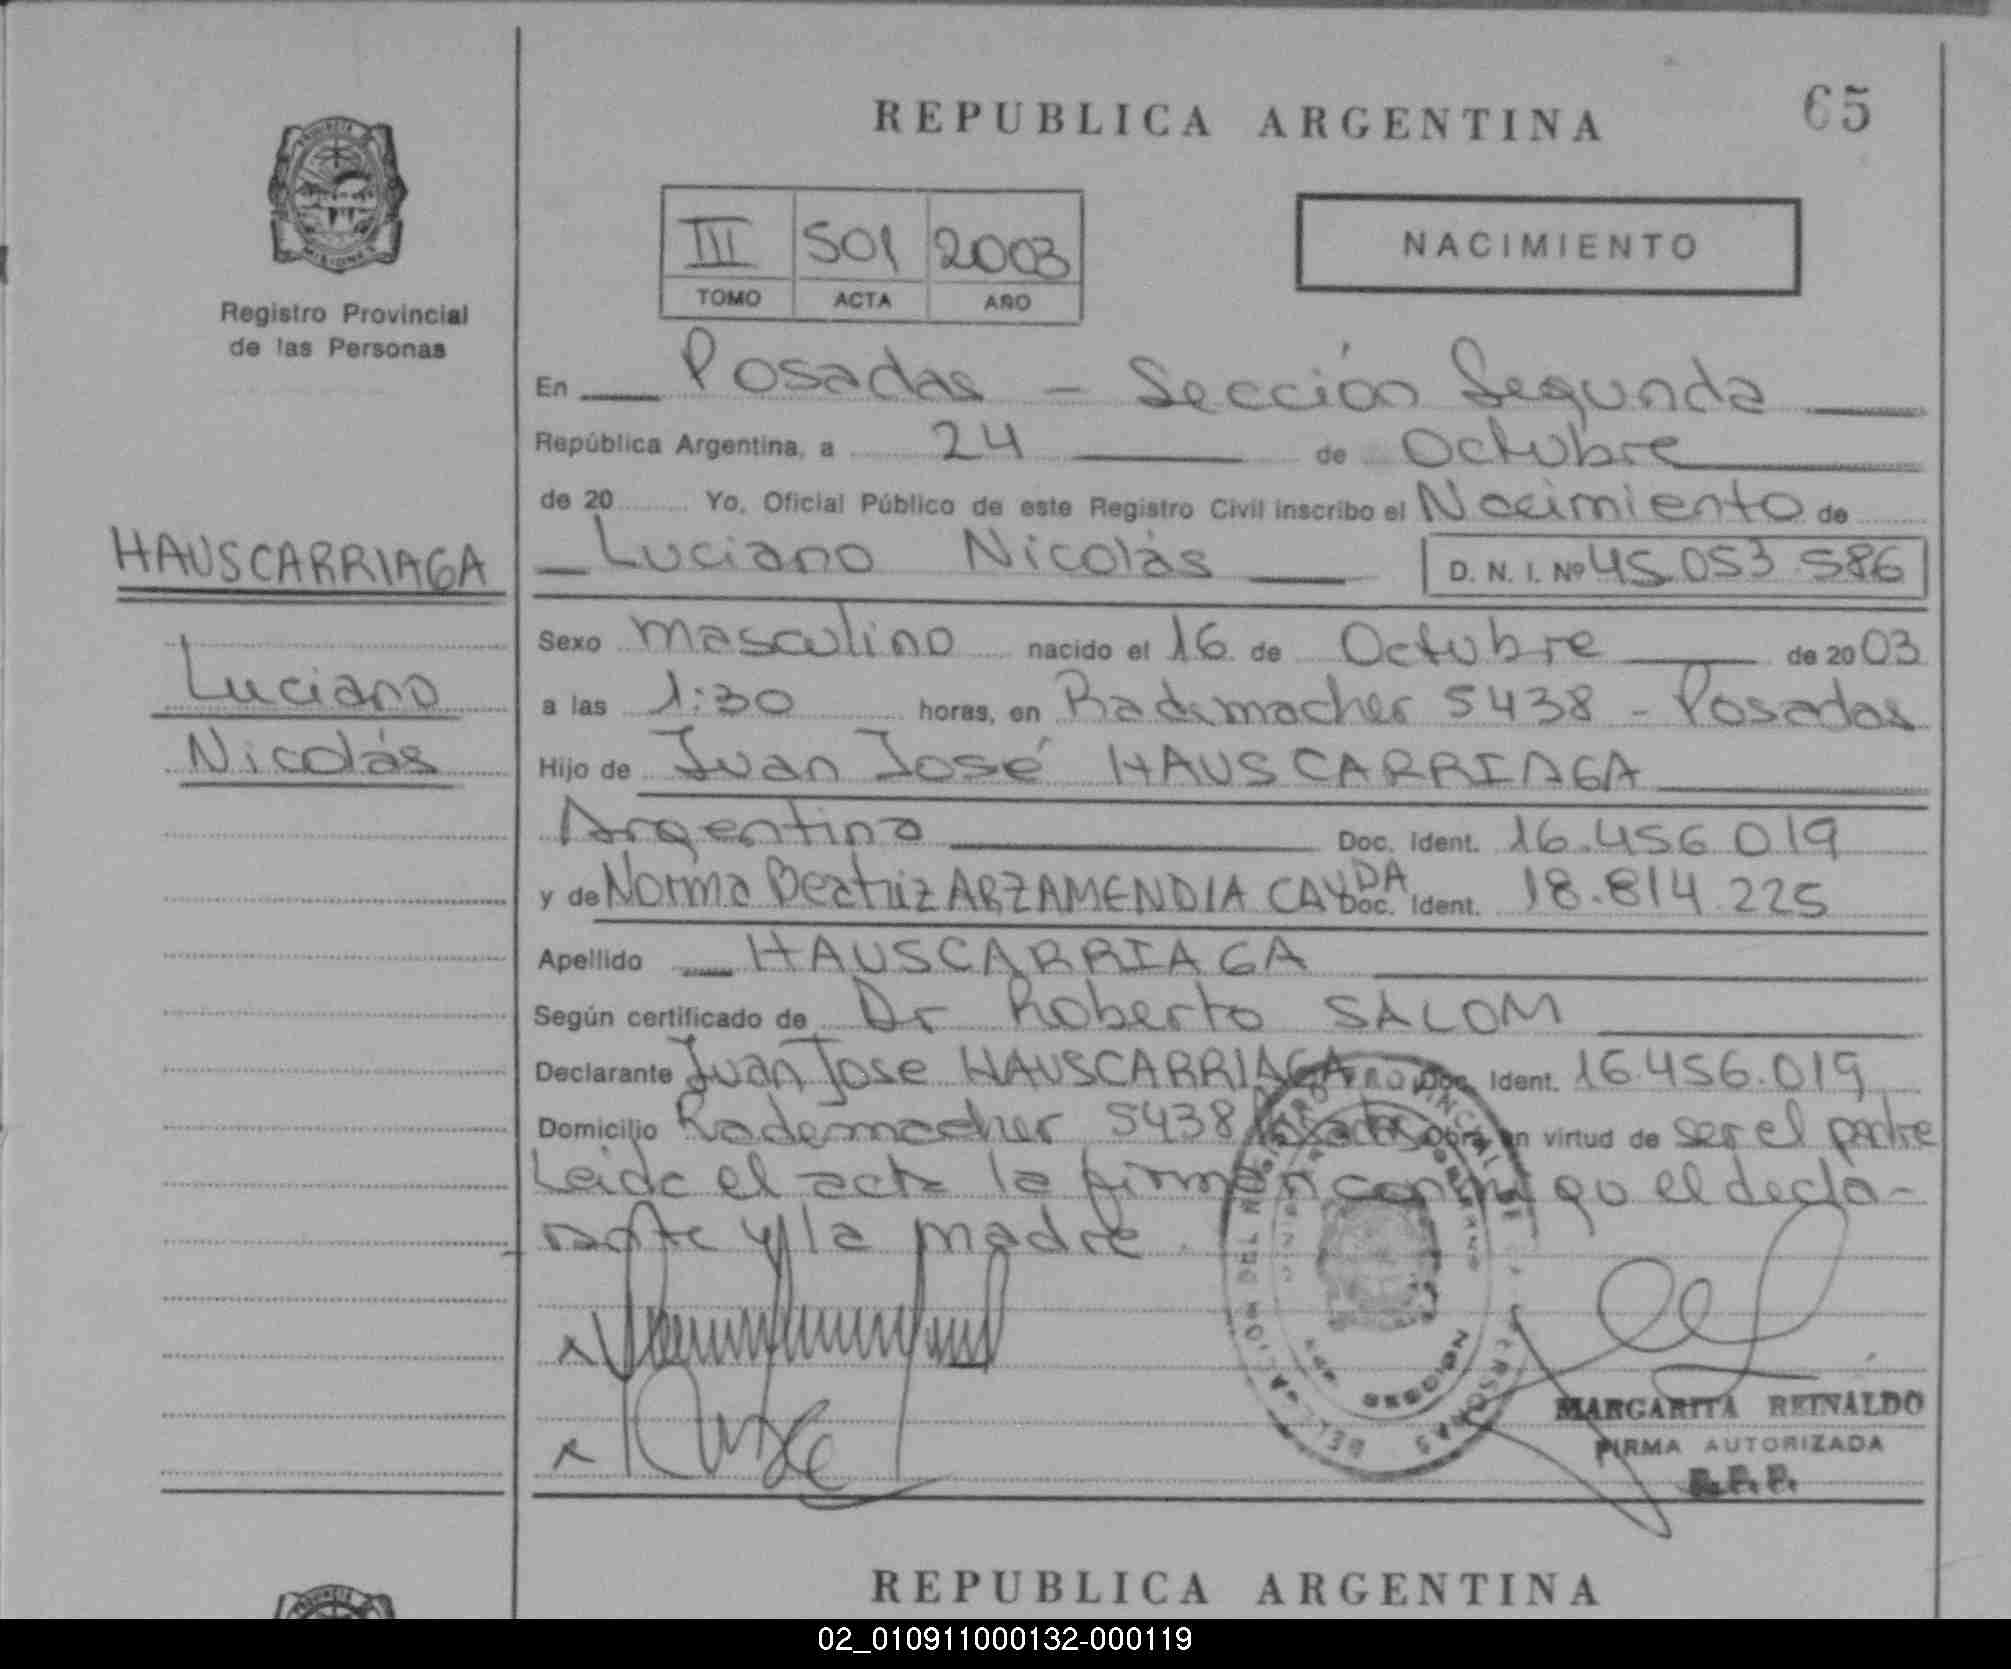 REPUBLICA ARGENTINA
65
PROVINCIA
MISIONES
Registro Provincial
de las Personas
III 501 2003
TOMO ACTA AÑO
NACIMIENTO
En Posadas - Sección Segunda
República Argentina, a 24 de Octubre
de 20 Yo, Oficial Público de este Registro Civil inscribo el Nacimiento de
HAUSCARRIAGA
Luciano Nicolás D. N. I. Nº 45.053.586
Sexo masculino nacido el 16 de Octubre de 2003
Luciano
a las 1:30 horas, en Rademacher 5438 - Posadas
Nicolás
Hijo de Juan José HAUSCARRIAGA
Argentina Doc. Ident. 16.456.019
y de Norma Beatriz ARZAMENDIA Doc. Ident. 18.814.225
Apellido HAUSCARRIAGA
Según certificado de Dr Roberto SALOM
Declarante Juan Jose HAUSCARRIAGA Doc. Ident. 16.456.019
Domicilio Rademacher 5438 Posadas Obra en virtud de ser el padre
Leida el acta la firman conmigo el decla-
rante y la madre
MARGARITA REINALDO
FIRMA AUTORIZADA
R.P.P.
REPUBLICA ARGENTINA
02_010911000132-000119